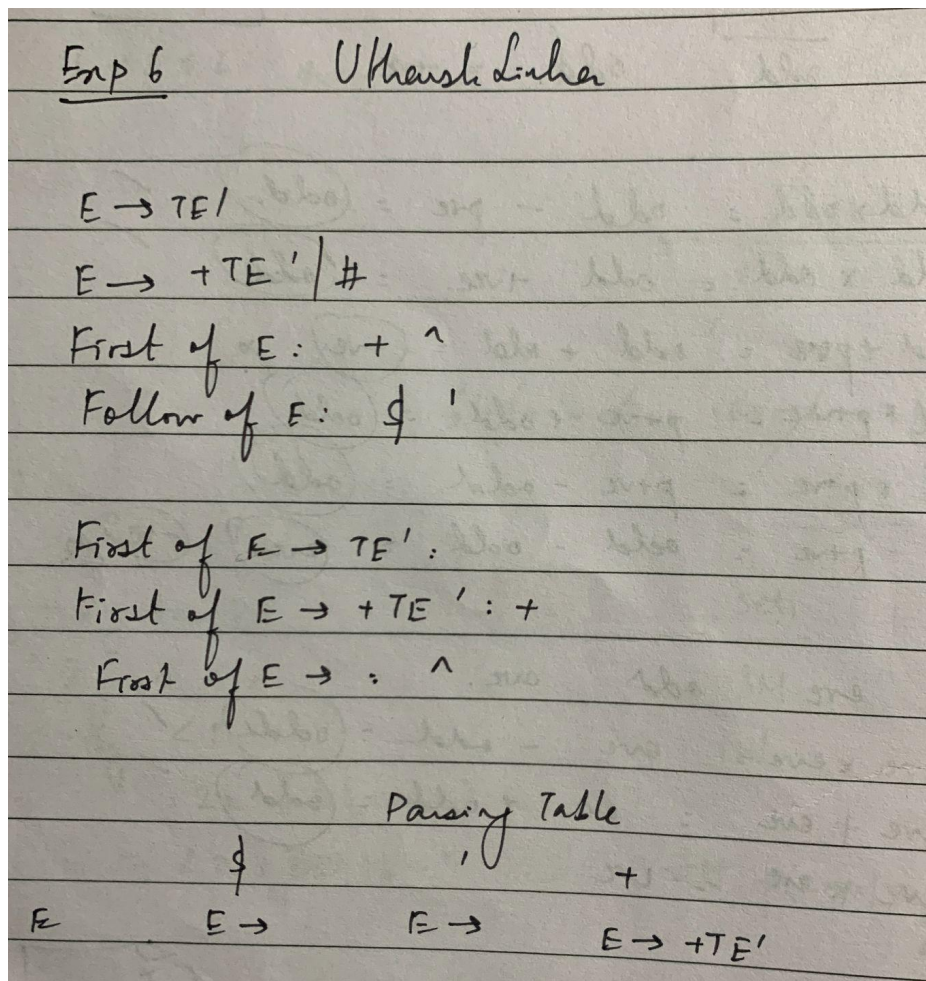 Exp 6 Utkarsh Sinha
E → TE'
E → + TE' | #
First of E: + ^
Follow of E: $ '
First of E → TE' :
First of E → + TE' : +
First of E → : ^
Parsing Table
$ ' +
E E → E → E → +TE'